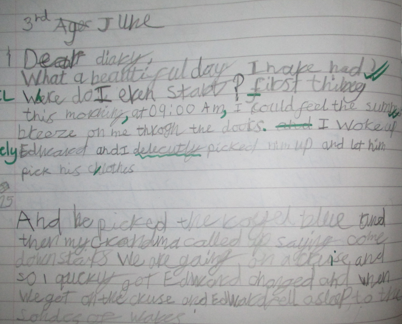 3rd June
Dear diary,
What a beautiful day I have had
Were do I even start? first thing
this morning, at 09:00 Am, I could feel the sunny
breeze on me through the doors. and I woke up
Edward and I delicutly picked him up and let him
pick his clothes
And he picked the blue and
then my Grandma called us saying come
downstairs We are going on a cruise and
so I quckly got Edword changed and when
we got on the cruse and Edward fell aslep to the